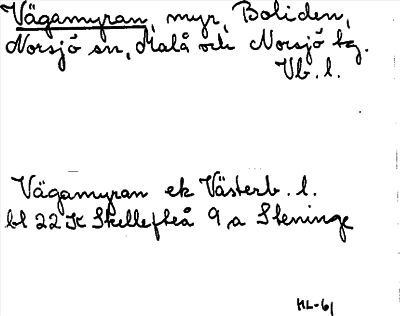 Vägamyran, myr, Boliden,
Norsjö sn, Malå och Norsjö tg.
Vb. l.
Vägamyran ek Västerb. l.
bl 22 K Skellefteå 9 a Steninge
HL-61